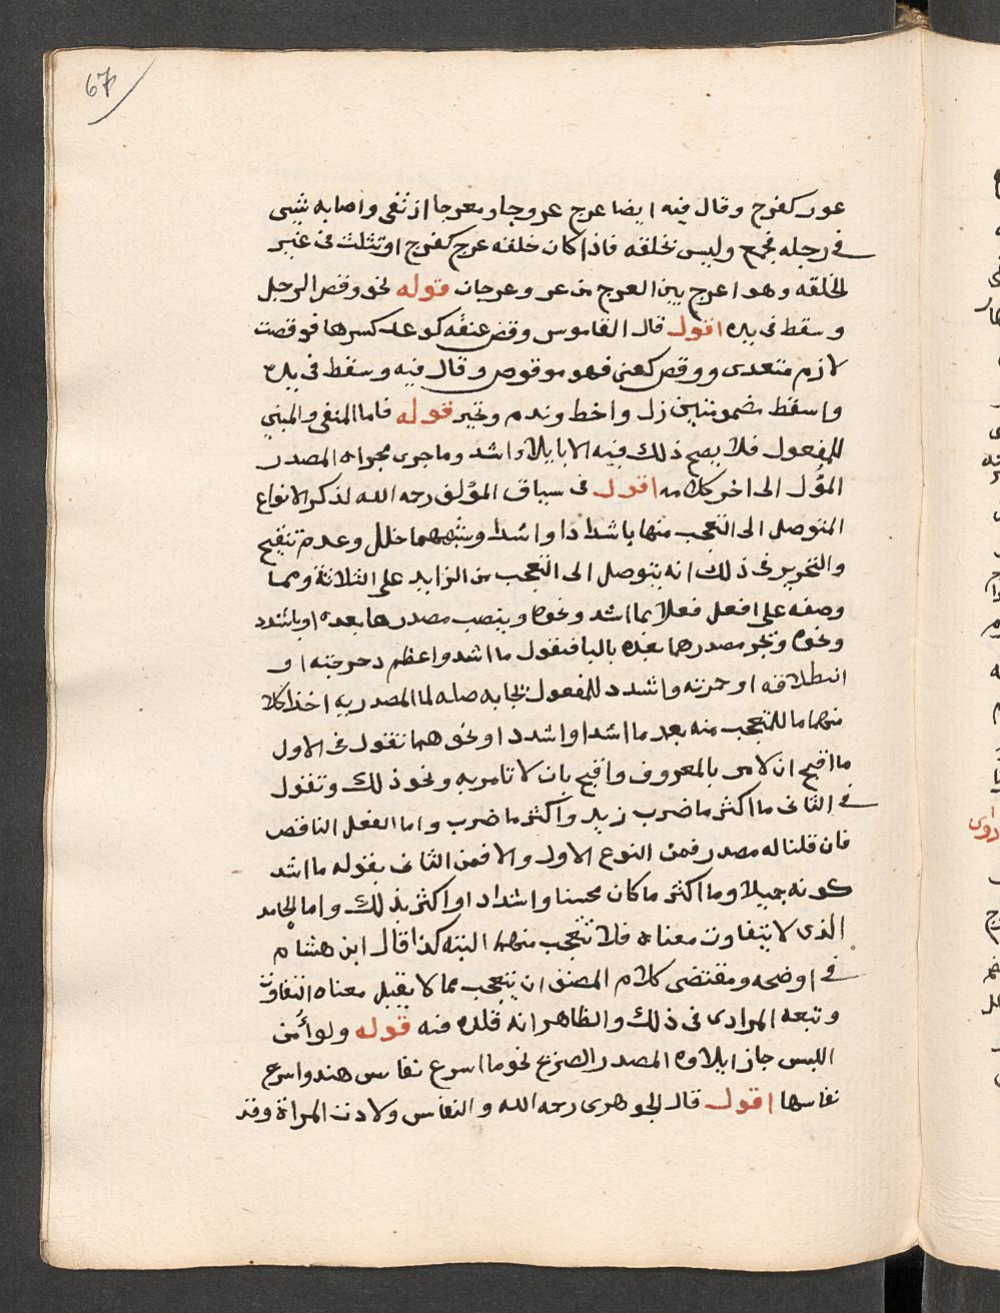 67
عور كفرح وقال فيه ايضا عرج عروجا ومعرجا ارتقى واصابه شيئ
في رجله فجمع وليس بخلقه فاذا كان خلقه عرج كفرح او تثلث في غير
الخلقه وهو اعرج بين العرج من عر وعرجان قوله نحو وقص الرجل
وسقط في يده اقول قال القاموس وقص عنقه كوعد كسرها فوقصت
لازم متعدى ووقص كعنى فهو موقوص وقال فيه وسقط في يده
واسقط مضمومتين زل واخطا وندم وتحير قوله فاما المنفى والمبنى
للمفعول فلا يصح ذلك فيه الا بايلاء اشد وما جرى مجراه المصدر
المؤل الى اخر كلامه اقول في سياق المؤلف رحمه الله لذكر الانواع
المتوصل الى التعجب منها باشد ذا واشدد وشبههما خلل وعدم تنقيح
والتحرير في ذلك انه يتوصل الى التعجب من الزايد على الثلاثة ومما
وصفه على افعل فعلا بما اشد ونحوه وينصب مصدرها بعده او باشدد
ونحوه ويجر مصدرهما بعده بالبا فيقول ما اشد واعظم دحرجته او
انطلاقه او حمرته واشدد للمفعول بجابه صله لما المصدريه اخذا كلا
منهما ما للتعجب منه بعد ما اشد او اشدد او نحوهما تقول في الاول
ما اقبح ان لا مر بالمعروف واقبح بان لا تامر به ونحو ذلك وتقول
في الثانى ما اكثر ما ضرب زيد واكثر ما ضرب واما الفعل الناقص
فان قلنا له مصدر فمن النوع الاول والا فمن الثانى بقوله ما اشد
كونه جميلا وما اكثر ما كان محسنا واشدد او اكثر بذلك واما الجامد
الذى لا يتفاوت معناه فلا تتعجب منهما البته كذا قال ابن هشام
في اوضحه ومقتضى كلام المصنف ان يتعجب مما لا يقبل معناه التفاوت
وتبعه المرادى في ذلك والظاهر انه قلده فيه قوله ولو أمن
اللبس جاز ايلاوه المصدر الصريح نحو ما اسرع نفاس هند واسرع
نفاسها اقول قال الجوهرى رحمه الله والنفاس ولادت المراة وقد